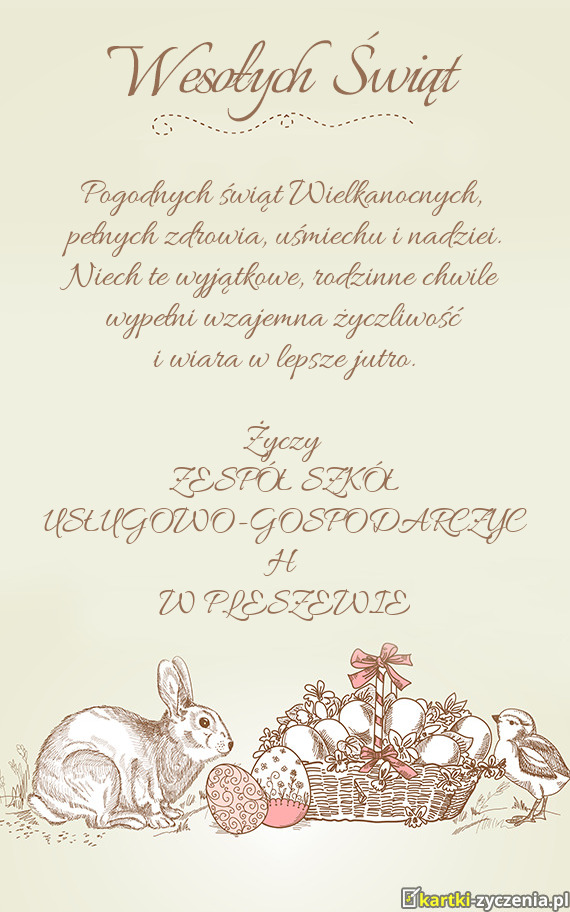 Wesołych Świąt
Pogodnych świąt Wielkanocnych,
pełnych zdrowia, uśmiechu i nadziei.
Niech te wyjątkowe, rodzinne chwile
wypełni wzajemna życzliwość
i wiara w lepsze jutro.
Życzy
ZESPÓŁ SZKÓŁ
USŁUGOWO-GOSPODARCZYC
H
W PLESZEWIE
kartki-zyczenia.pl